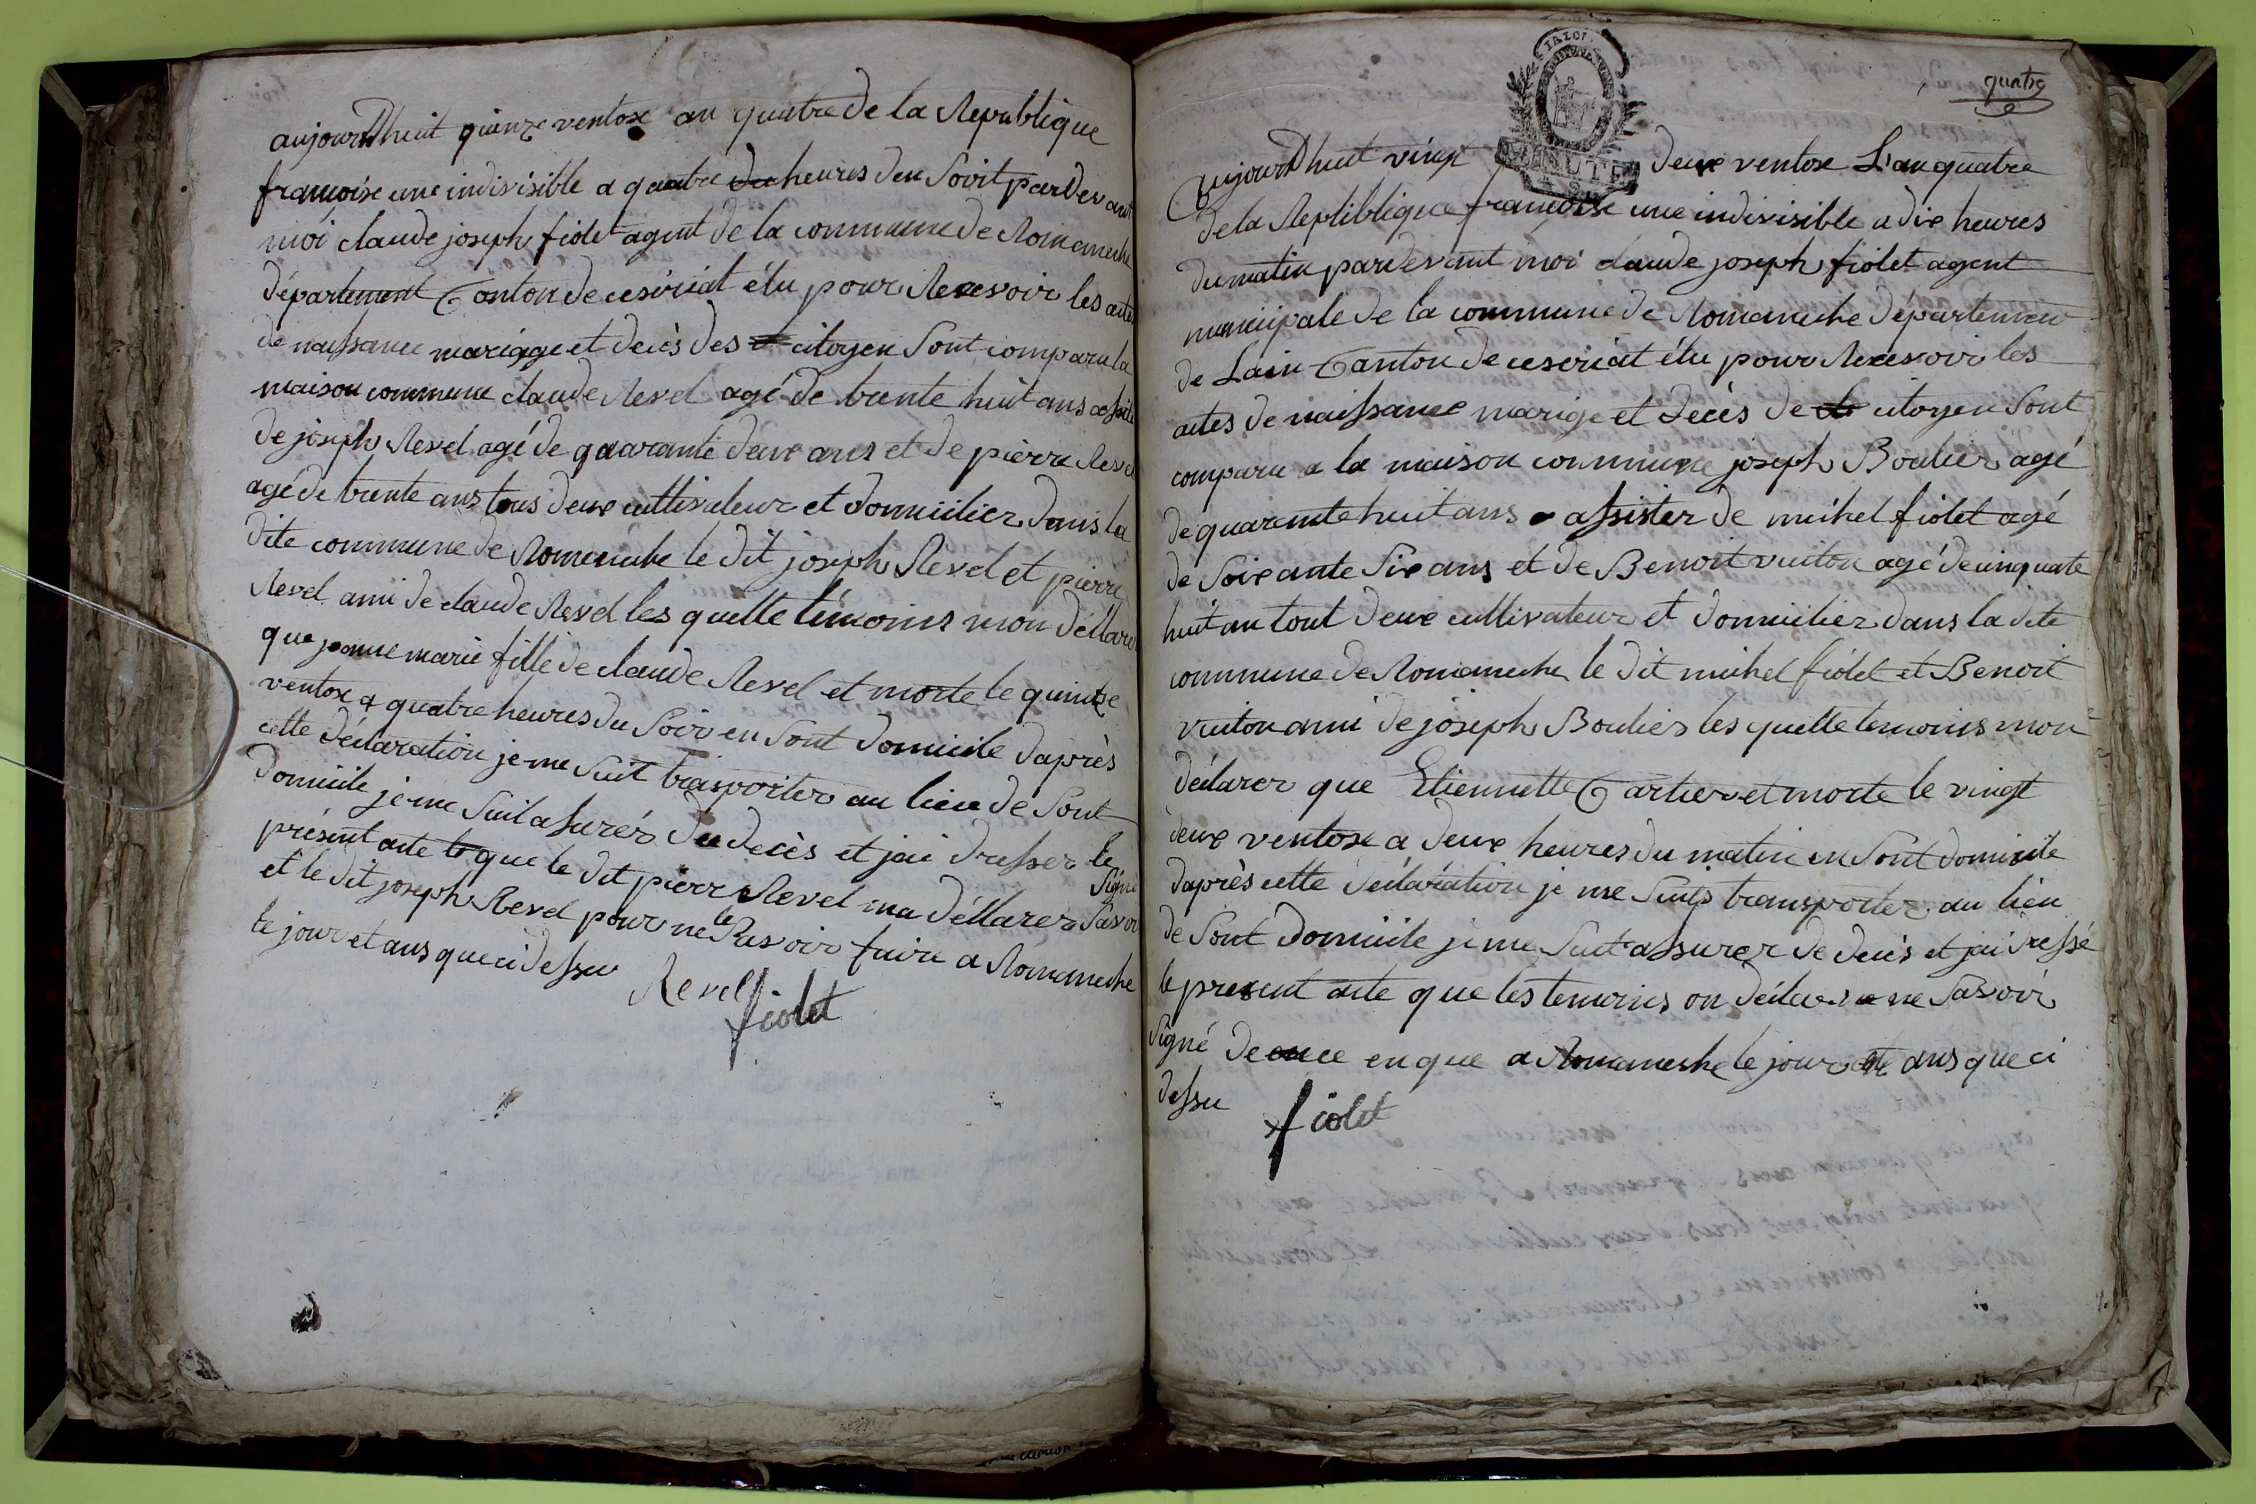 aujourDhuit quinze ventose an quatre de la Republique
francoise une indivisible a quatre heures deu Sooit par devant
moi claude joseph fiolet agent de la commune de Romaneche
département Canton de ceseriat élu pour Recevoir les acte
de naissance mariage et decès des citoyen Sont comparu la
maison commune claude Revel agé de trente huit ans assité
de joseph Revel agé de quarante deux ans et de pierre Revel
agé de trente ans tous deux cultivateur et domicilier dans la
dite commune de Romeneche le dit joseph Revel et pierre
Revel ami de claude Revel les quelle témoins mon déllarer
que jeanne marie fille de claude Revel et morte le quinze
ventose a quatre heures du Soir en Sont domicile daprès
cette déclaration je me Suit trasporter au lieu de Sont
domicile je me Suit asurér du decès et jai dresser le
présent acte que le dit pierre Revel ma déllarer Savoir
Signé
et le dit joseph Revel pour ne le Savoir faire a Romaneche
le jour et ans que ci dessu
Revel
fiolet
ETALON
MINUTE
quatre
aujourDhuit vingt deux ventose L'an quatre
de la Repliblique francoise une indivisible a dix heures
du matin pardevant moi claude joseph fiolet agent
municipale de la commune de Romaneche département
de Lain Canton de ceseriat élu pour Recevoir les
actes de naissance marige et decès de citoyen Sont
comparu a la maison commune joseph Boulier agé
de quarante huit ans assister de michel fiolet agé
de Soixante Six ans et de Benoit vuiton agé de cinquate
huit an tout deux cultivateur et domicilier dans la dite
commune de Romaneche le dit michel fiolet et Benoit
vuiton ami de joseph Boulier les quelle temoins mon
déclarer que Etiennette Cartier et morte le vingt
deux ventose a deux heures du matin en Sont domicile
daprès cette déclaration je me Suits transporter au lieu
de Sont domicile je me Suit assurer de decès et jai dressé
le present acte que les temoins on déclarer ne Savoir
Signé de ce enque a Romaneche le jour et ans que ci
dessu
fiolet